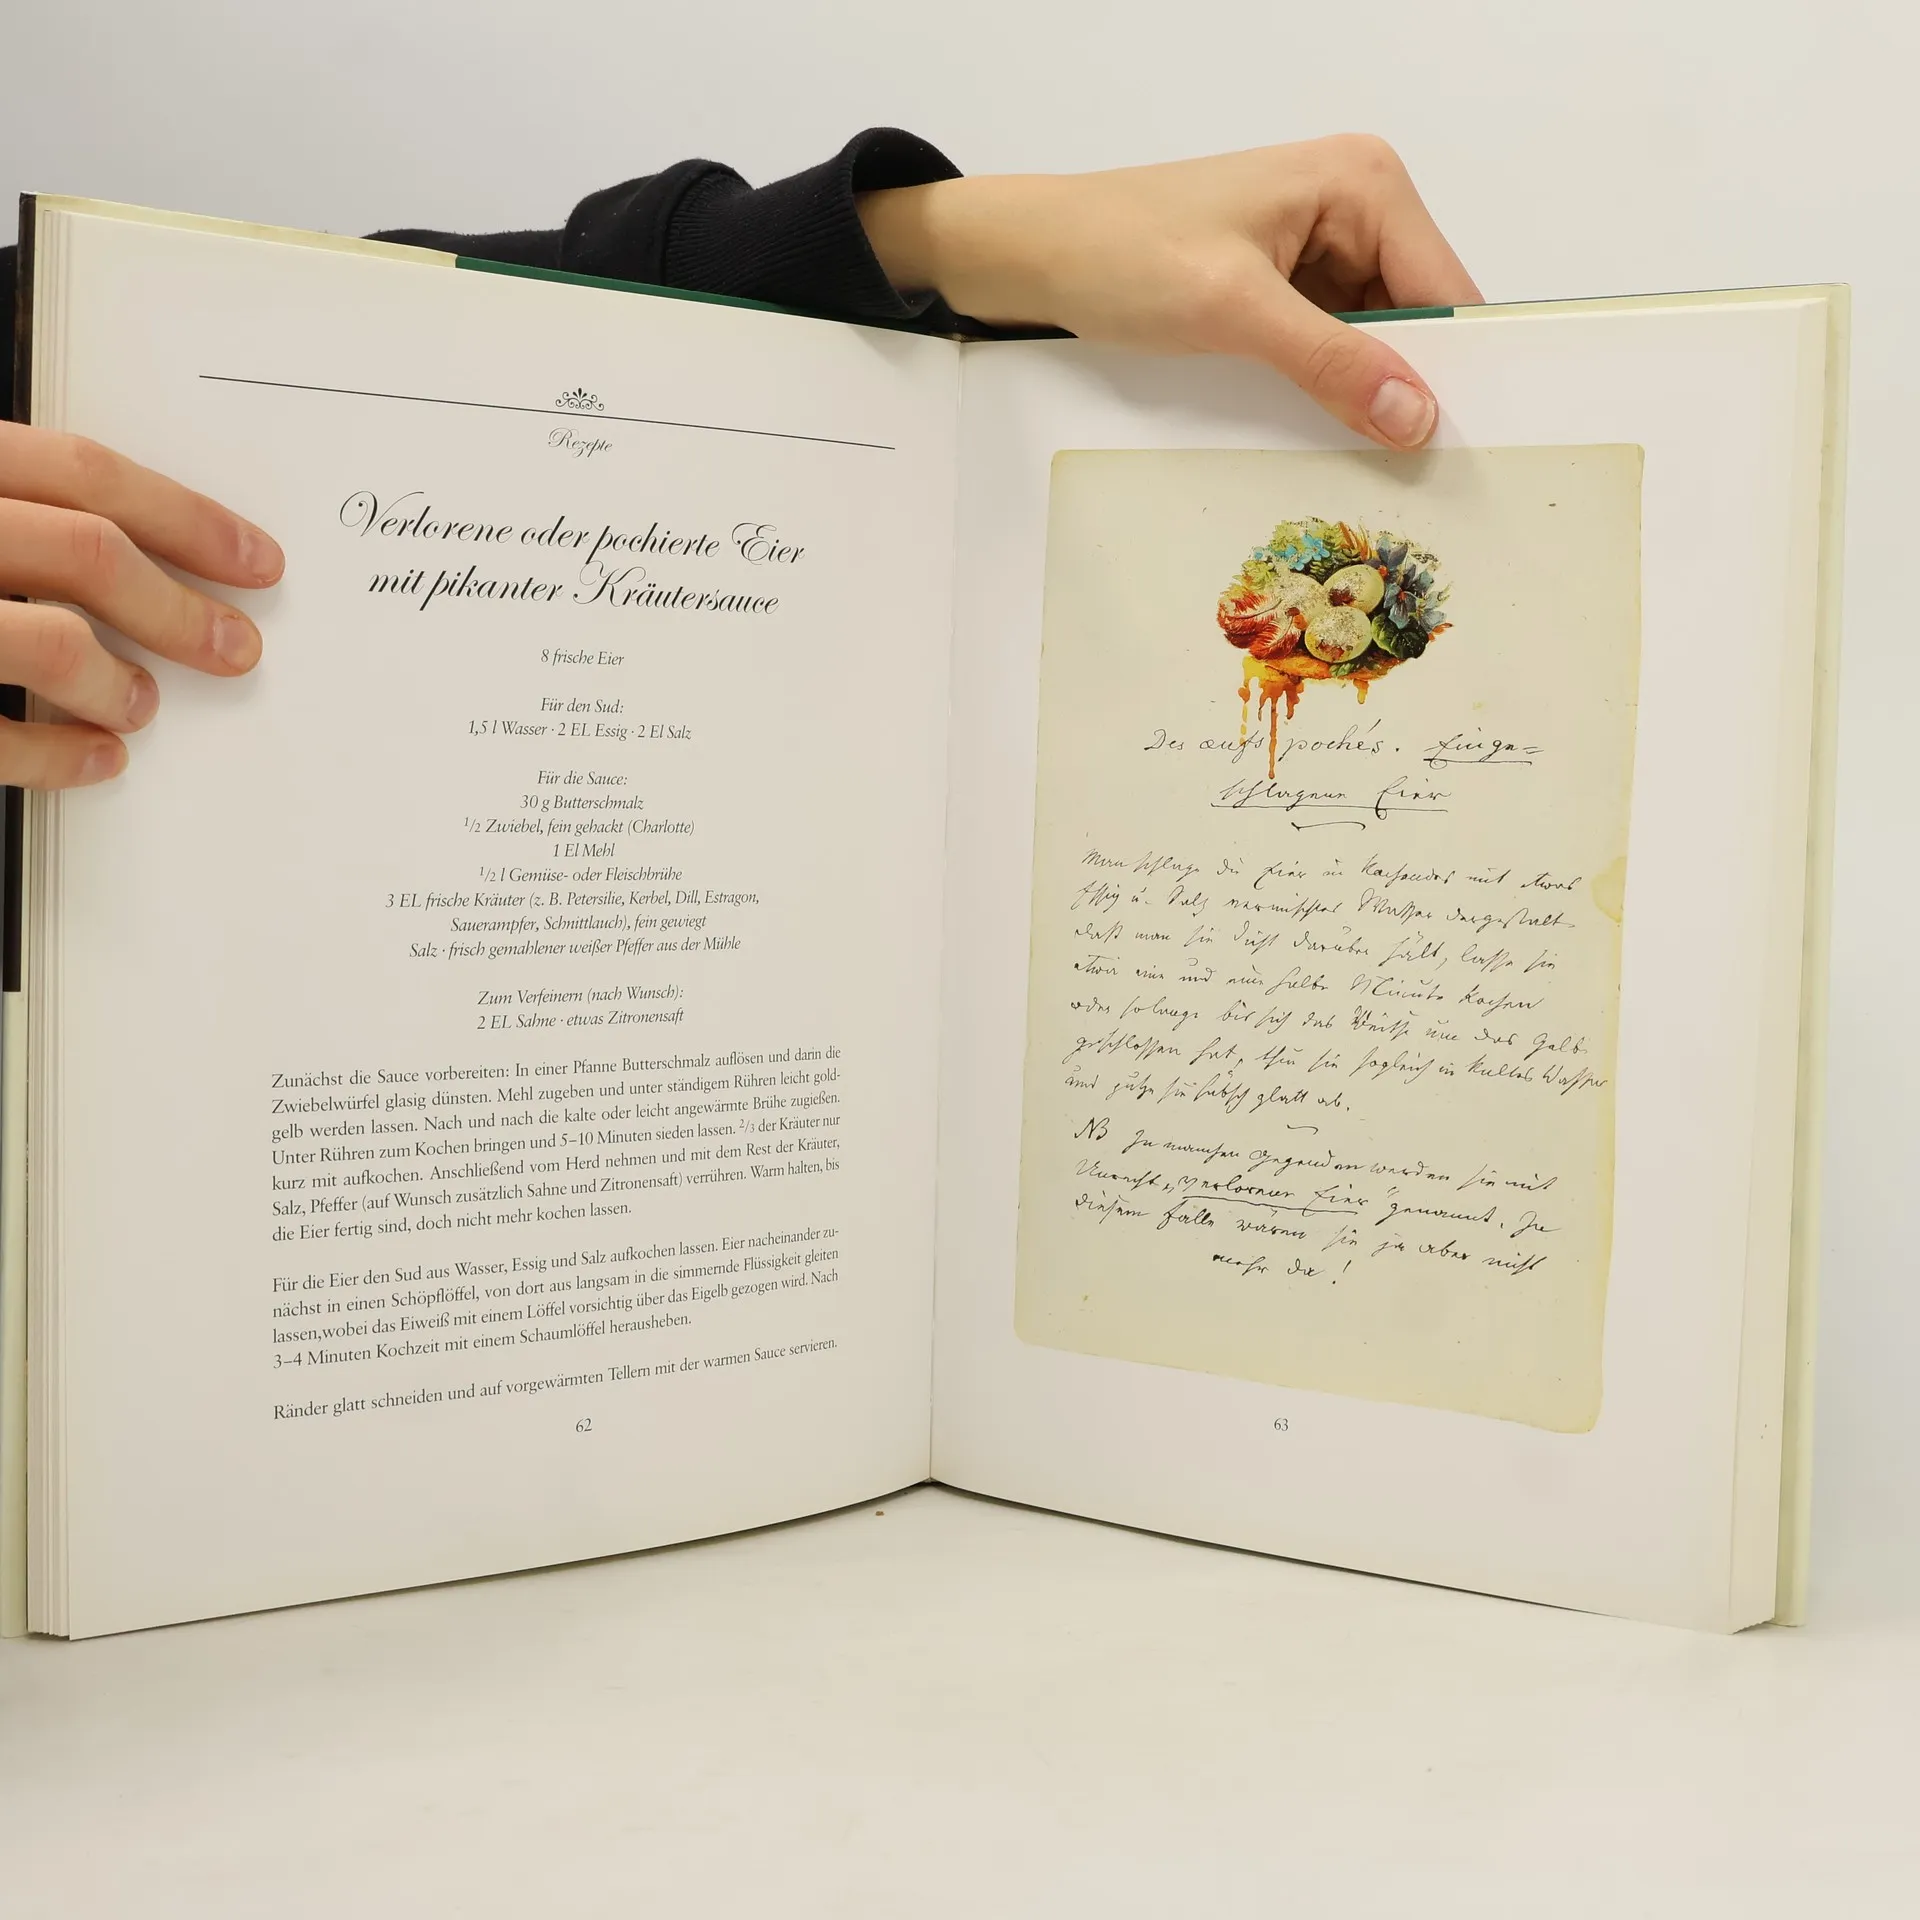 Rezepte
Verlorene oder pochierte Eier
mit pikanter Kräutersauce
8 frische Eier
Für den Sud:
1,5 l Wasser · 2 EL Essig · 2 El Salz
Für die Sauce:
30 g Butterschmalz
1/2 Zwiebel, fein gehackt (Charlotte)
1 El Mehl
1/2 l Gemüse- oder Fleischbrühe
3 EL frische Kräuter (z. B. Petersilie, Kerbel, Dill, Estragon,
Sauerampfer, Schnittlauch), fein gewiegt
Salz · frisch gemahlener weißer Pfeffer aus der Mühle
Zum Verfeinern (nach Wunsch):
2 EL Sahne · etwas Zitronensaft
Zunächst die Sauce vorbereiten: In einer Pfanne Butterschmalz auflösen und darin die
Zwiebelwürfel glasig dünsten. Mehl zugeben und unter ständigem Rühren leicht gold-
gelb werden lassen. Nach und nach die kalte oder leicht angewärmte Brühe zugießen.
Unter Rühren zum Kochen bringen und 5–10 Minuten sieden lassen. 2/3 der Kräuter nur
kurz mit aufkochen. Anschließend vom Herd nehmen und mit dem Rest der Kräuter,
Salz, Pfeffer (auf Wunsch zusätzlich Sahne und Zitronensaft) verrühren. Warm halten, bis
die Eier fertig sind, doch nicht mehr kochen lassen.
Für die Eier den Sud aus Wasser, Essig und Salz aufkochen lassen. Eier nacheinander zu-
nächst in einen Schöpflöffel, von dort aus langsam in die simmernde Flüssigkeit gleiten
lassen,wobei das Eiweiß mit einem Löffel vorsichtig über das Eigelb gezogen wird. Nach
3–4 Minuten Kochzeit mit einem Schaumlöffel herausheben.
Ränder glatt schneiden und auf vorgewärmten Tellern mit der warmen Sauce servieren.
62
Des œufs pochés. Einge=
schlagene Eier
Man schlage die Eier in kochendes mit etwas
Essig u. Salz vermischtes Wasser dergestalt
daß man sie dicht darüber hält, lasse sie
etwa eine und eine halbe Minute kochen
oder solange bis sich das Weiße um das Gelbe
geschlossen hat, thue sie sogleich in kaltes Wasser
und putze sie hübsch glatt ab.
NB In manchen Gegenden werden sie mit
Unrecht „verlorene Eier" genannt. In
diesem Falle wären sie ja aber nicht
mehr da!
63